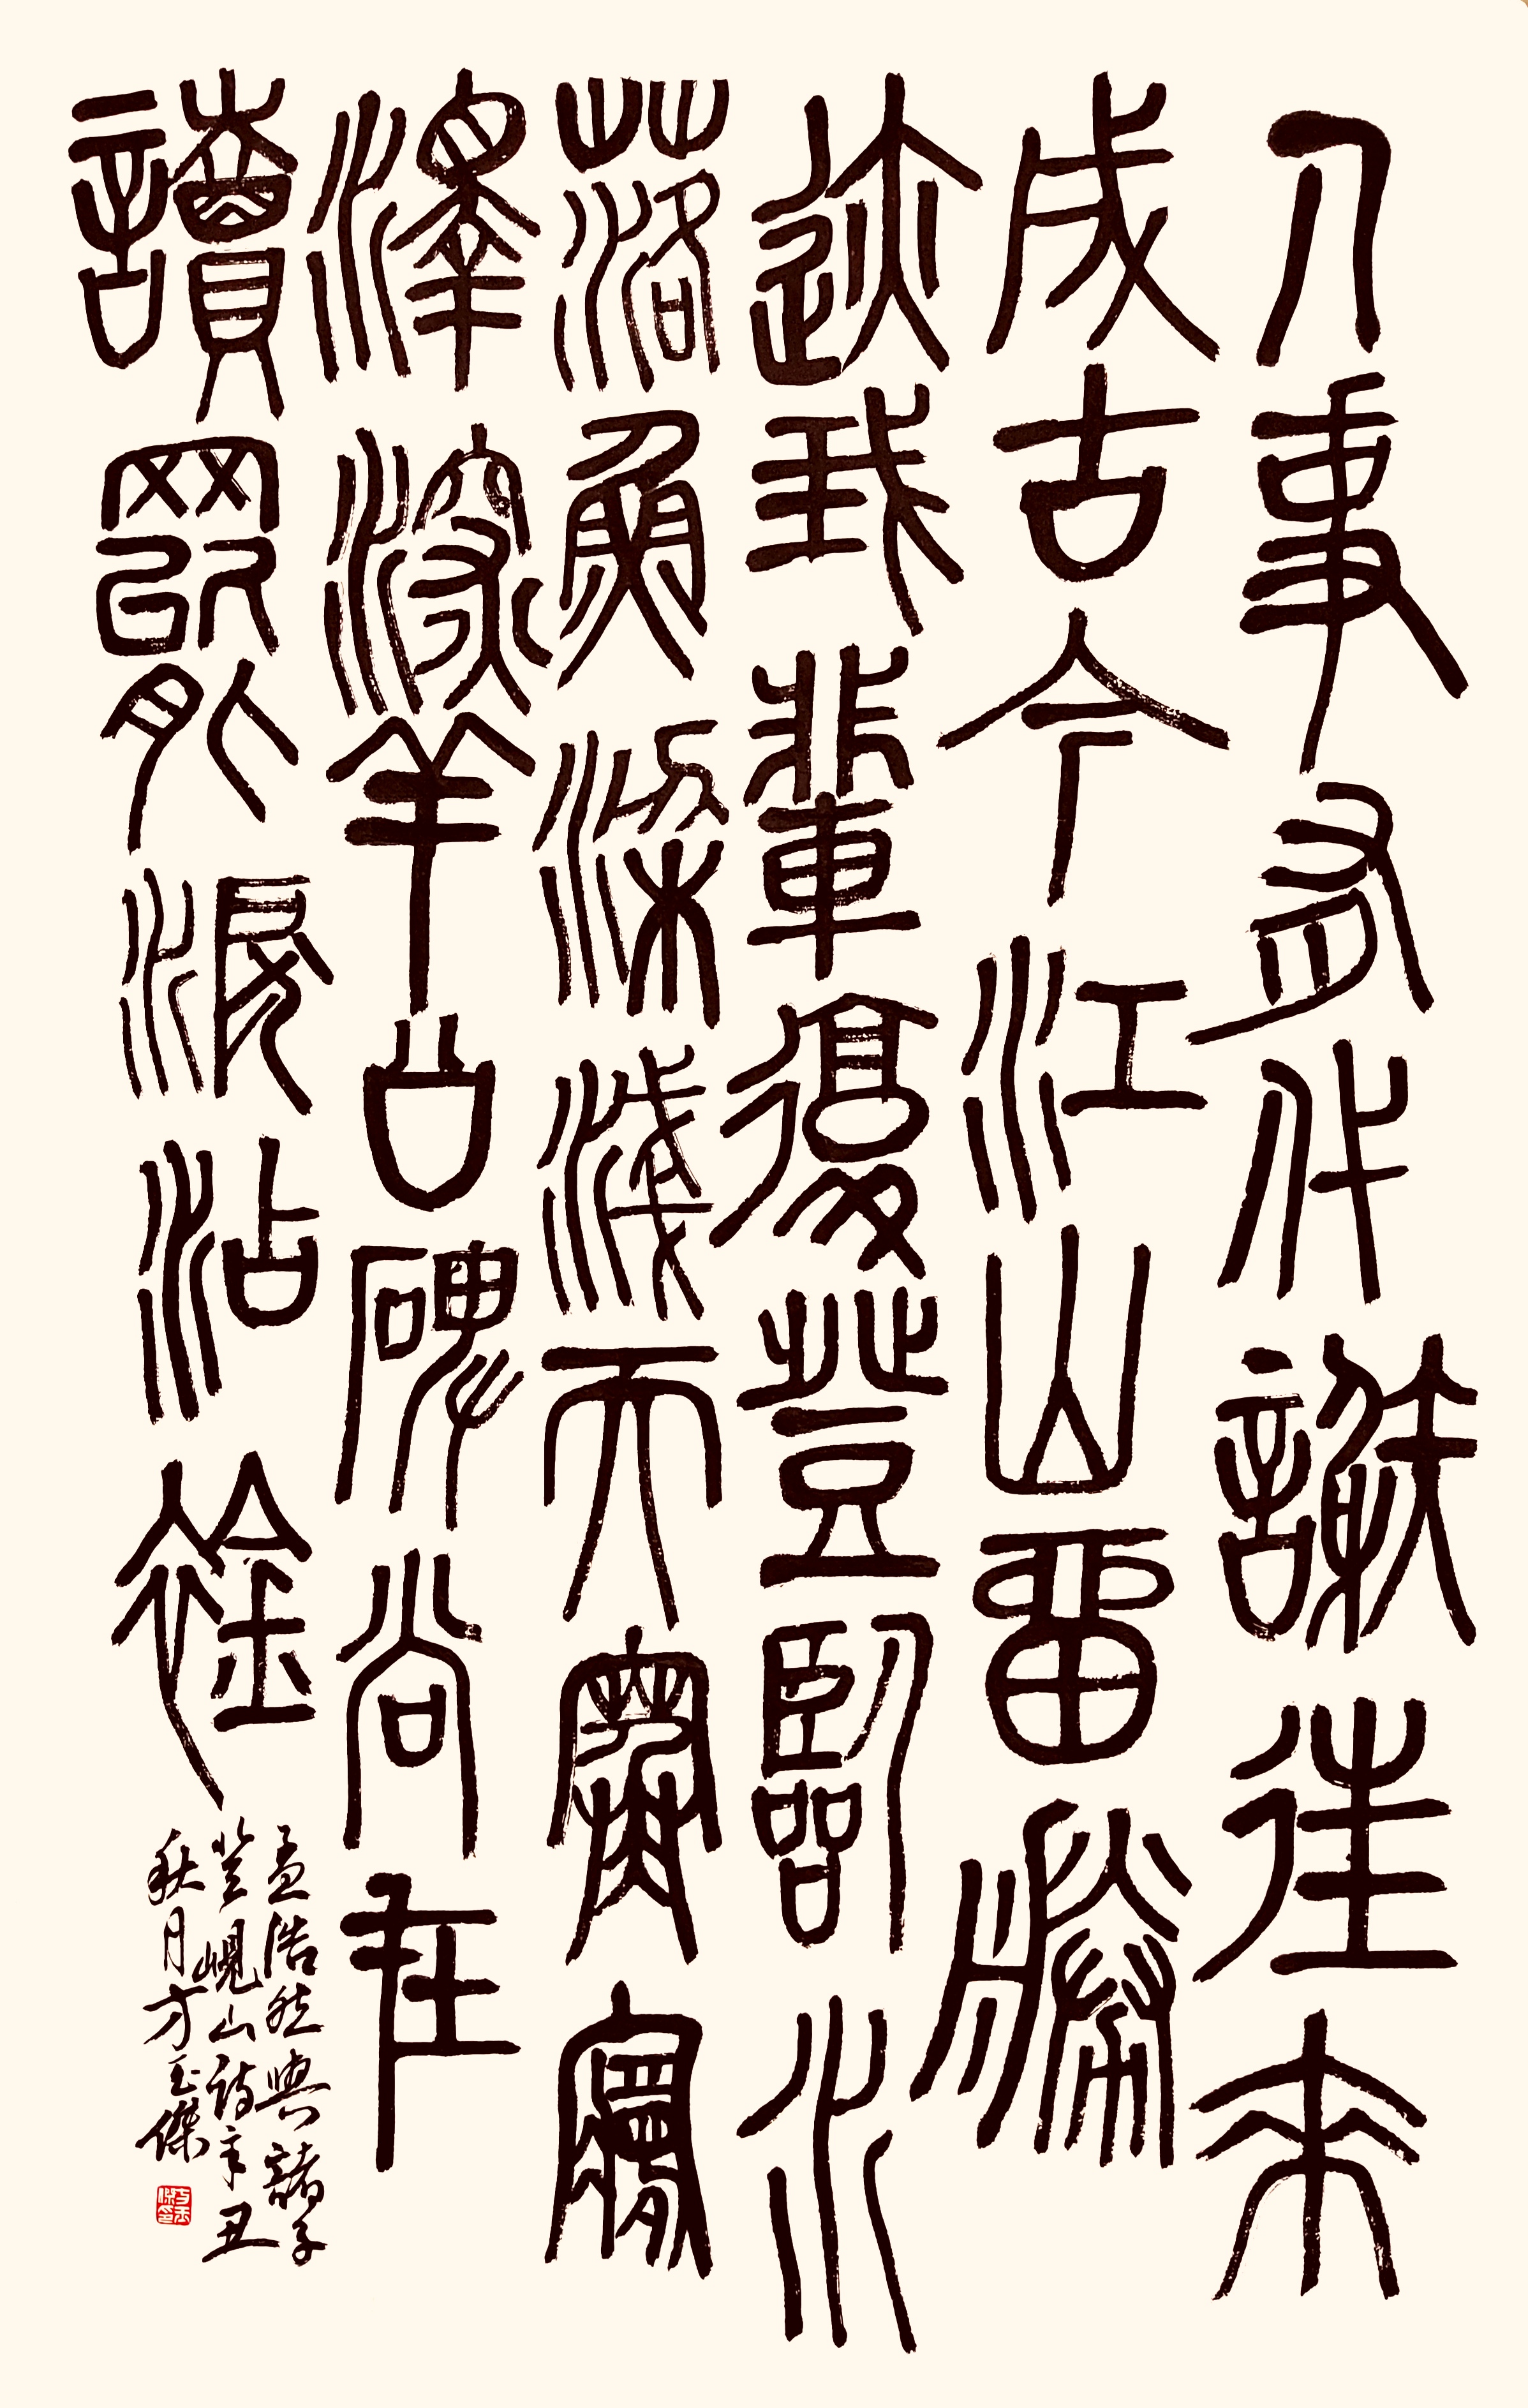 人事有代謝往來
成古今江山留勝
迹我輩復登臨水
落魚梁淺天寒夢
澤深羊公碑尚在
讀罷淚沾襟
孟浩然與諸子
登峴山詩辛丑
秋月方玉傑